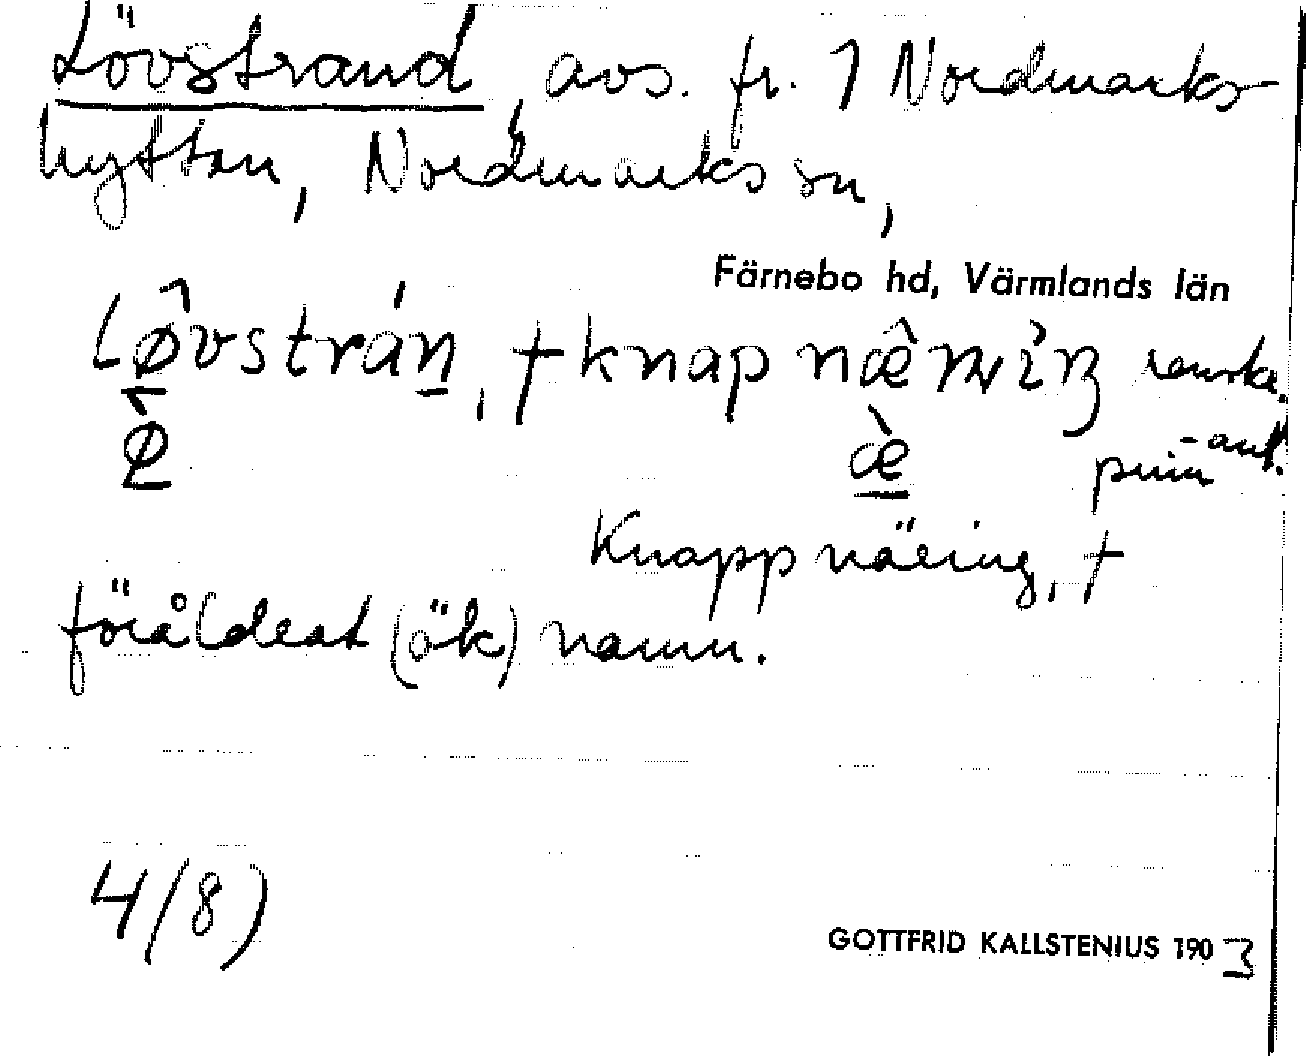 Lövstrand, avs. fr. 1 Nordmarks-
hyttan, Nordmarks sn,
Färnebo hd, Värmlands län
Lø̂vstrán, †knapnæ̂r
œ̀
Knappnäring, †
föråldrat (ök)namn.
4/8)
GOTTFRID KALLSTENIUS 1903